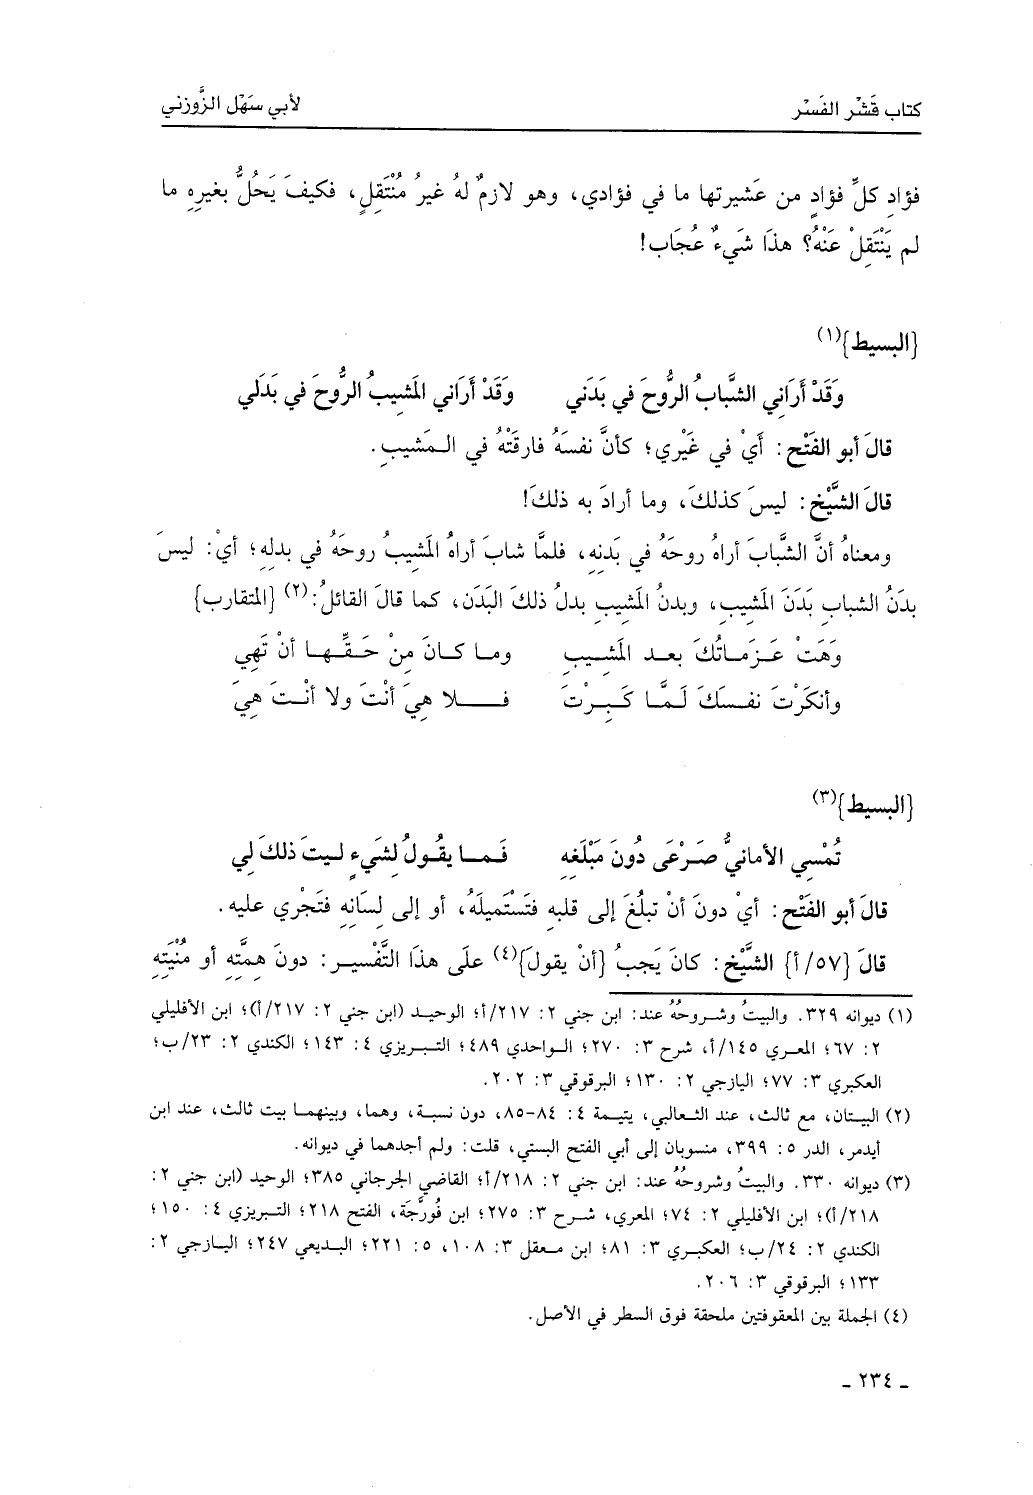 كتاب قَشْر الفَسْر لأبي سَهْل الزَّوزني
فؤادِ كلِّ فؤادٍ من عَشيرتها ما في فؤادي، وهو لازمٌ لهُ غيرُ مُنْتَقِلٍ، فكيفَ يَحُلُّ بغيرِهِ ما
لم يَنْتَقِلْ عَنْهُ؟ هذا شَيءٌ عُجَاب!
{البسيط}(١)
وَقَدْ أَرَاني الشَّبابُ الرُّوحَ في بَدَني وَقَدْ أَرَاني المَشيبُ الرُّوحَ في بَدَلي
قالَ أبو الفَتْح: أَيْ في غَيْري؛ كأنَّ نفسَهُ فارقَتْهُ في المَشيبِ.
قالَ الشَّيْخ: ليسَ كذلكَ، وما أرادَ به ذلكَ!
ومعناهُ أنَّ الشَّبابَ أراهُ روحَهُ في بَدنِهِ، فلمَّا شابَ أراهُ المَشيبُ روحَهُ في بدلِهِ؛ أيْ: ليسَ
بدَنُ الشبابِ بَدَنَ المَشيبِ، وبدنُ المَشيبِ بدلُ ذلكَ البَدَن، كما قالَ القائلُ:(٢) {المتقارب}
وَهَتْ عَزَماتُكَ بعد المَشيبِ وما كانَ مِنْ حَقِّها أنْ تَهِي
وأنكَرْتَ نفسَكَ لَمَّا كَبِرْتَ فلا هِيَ أنْتَ ولا أنْتَ هِيَ
{البسيط}(٣)
تُمْسي الأمانيُّ صَرْعَى دُونَ مَبْلَغِهِ فَما يقُولُ لشَيءٍ ليتَ ذلكَ لي
قالَ أبو الفَتْح: أيْ دونَ أنْ تبلُغَ إلى قلبِهِ فتَسْتَميلَهُ، أو إلى لسَانِهِ فتَجْري عليه.
قالَ {٥٧/أ} الشَّيْخ: كانَ يَجبُ {أنْ يقولَ}(٤) علَى هذا التَّفْسير: دونَ همَّتِهِ أو مُنْيَتِهِ
(١) ديوانه ٣٢٩. والبيتُ وشروحُهُ عند: ابن جني ٢: ٢١٧/أ؛ الوحيد (ابن جني ٢: ٢١٧/أ)؛ ابن الأفليلي
٢: ٦٧؛ المعري ١٤٥/أ، شرح ٣: ٢٧٠؛ الواحدي ٤٨٩؛ التبريزي ٤: ١٤٣؛ الكندي ٢: ٢٣/ب؛
العكبري ٣: ٧٧؛ اليازجي ٢: ١٣٠؛ البرقوقي ٣: ٢٠٢.
(٢) البيتان، مع ثالث، عند الثعالبي، يتيمة ٤: ٨٤-٨٥، دون نسبة، وهما، وبينهما بيت ثالث، عند ابن
أيدمر، الدر ٥: ٣٩٩، منسوبان إلى أبي الفتح البستي، قلت: ولم أجدهما في ديوانه.
(٣) ديوانه ٣٣٠. والبيتُ وشروحُهُ عند: ابن جني ٢: ٢١٨/أ؛ القاضي الجرجاني ٣٨٥؛ الوحيد (ابن جني ٢:
٢١٨/أ)؛ ابن الأفليلي ٢: ٧٤؛ المعري، شرح ٣: ٢٧٥؛ ابن فورَّجَة، الفتح ٢١٨؛ التبريزي ٤: ١٥٠؛
الكندي ٢: ٢٤/ب؛ العكبري ٣: ٨١؛ ابن معقل ٣: ١٠٨، ٥: ٢٢١؛ البديعي ٢٤٧؛ اليازجي ٢:
١٣٣؛ البرقوقي ٣: ٢٠٦.
(٤) الجملة بين المعقوفتين ملحقة فوق السطر في الأصل.
ـ ٢٣٤ ـ